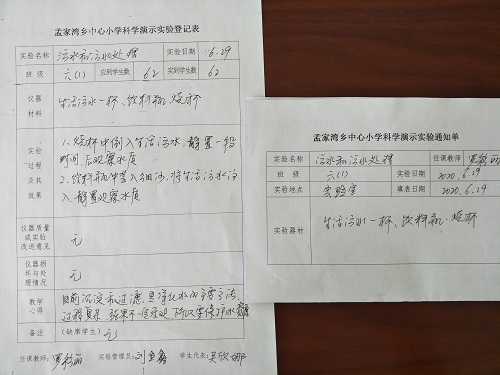 孟家湾乡中心小学科学演示实验登记表
实验名称 污水和污水处理 实验日期 6.29
班 级 六(1) 应到学生数 62 实到学生数 62
仪器材料 生活污水一杯、饮料瓶、烧杯
实验过程及其效果
1、烧杯中倒入生活污水,静置一段
时间后观察水质
2、饮料瓶中装入细沙,将生活污水倒
入,静置观察水质
仪器质量或实验改进意见 无
仪器损坏与处理情况 无
教学心得
目前沉淀和过滤,是净化水的主要方法,
过程复杂,效果不
备注 (缺席学生) 无
任课教师: 实验管理员: 学生代表: 吴欣娜
孟家湾乡中心小学科学演示实验通知单
实验名称 污水和污水处理 任课教师
班 级 六(1) 实验日期 2020.6.29
实验地点 实验室 填表日期 2020.6.29
实验器材 生活污水一杯、饮料瓶、烧杯